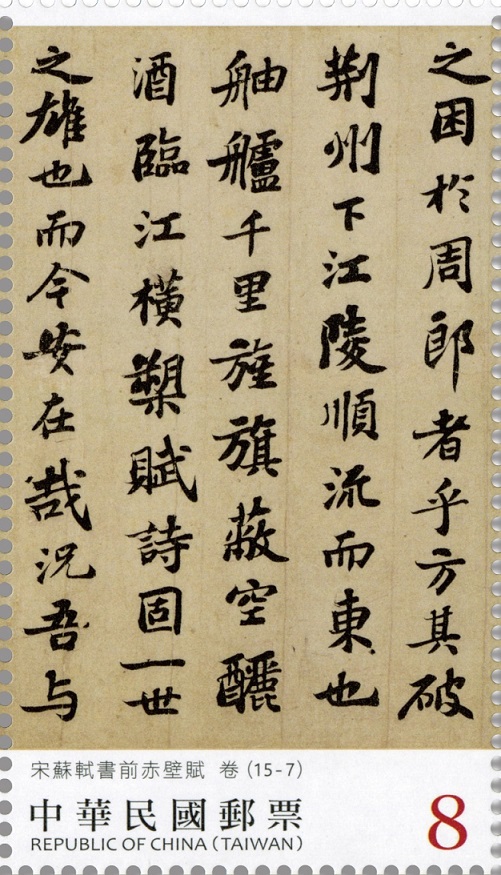 之困於周郎者乎方其破
荆州下江陵順流而東也
舳艫千里旌旗蔽空釃
酒臨江橫槊賦詩固一世
之雄也而今安在哉況吾与
宋蘇軾書前赤壁賦 卷 (15-7)
中華民國郵票
REPUBLIC OF CHINA (TAIWAN)
8